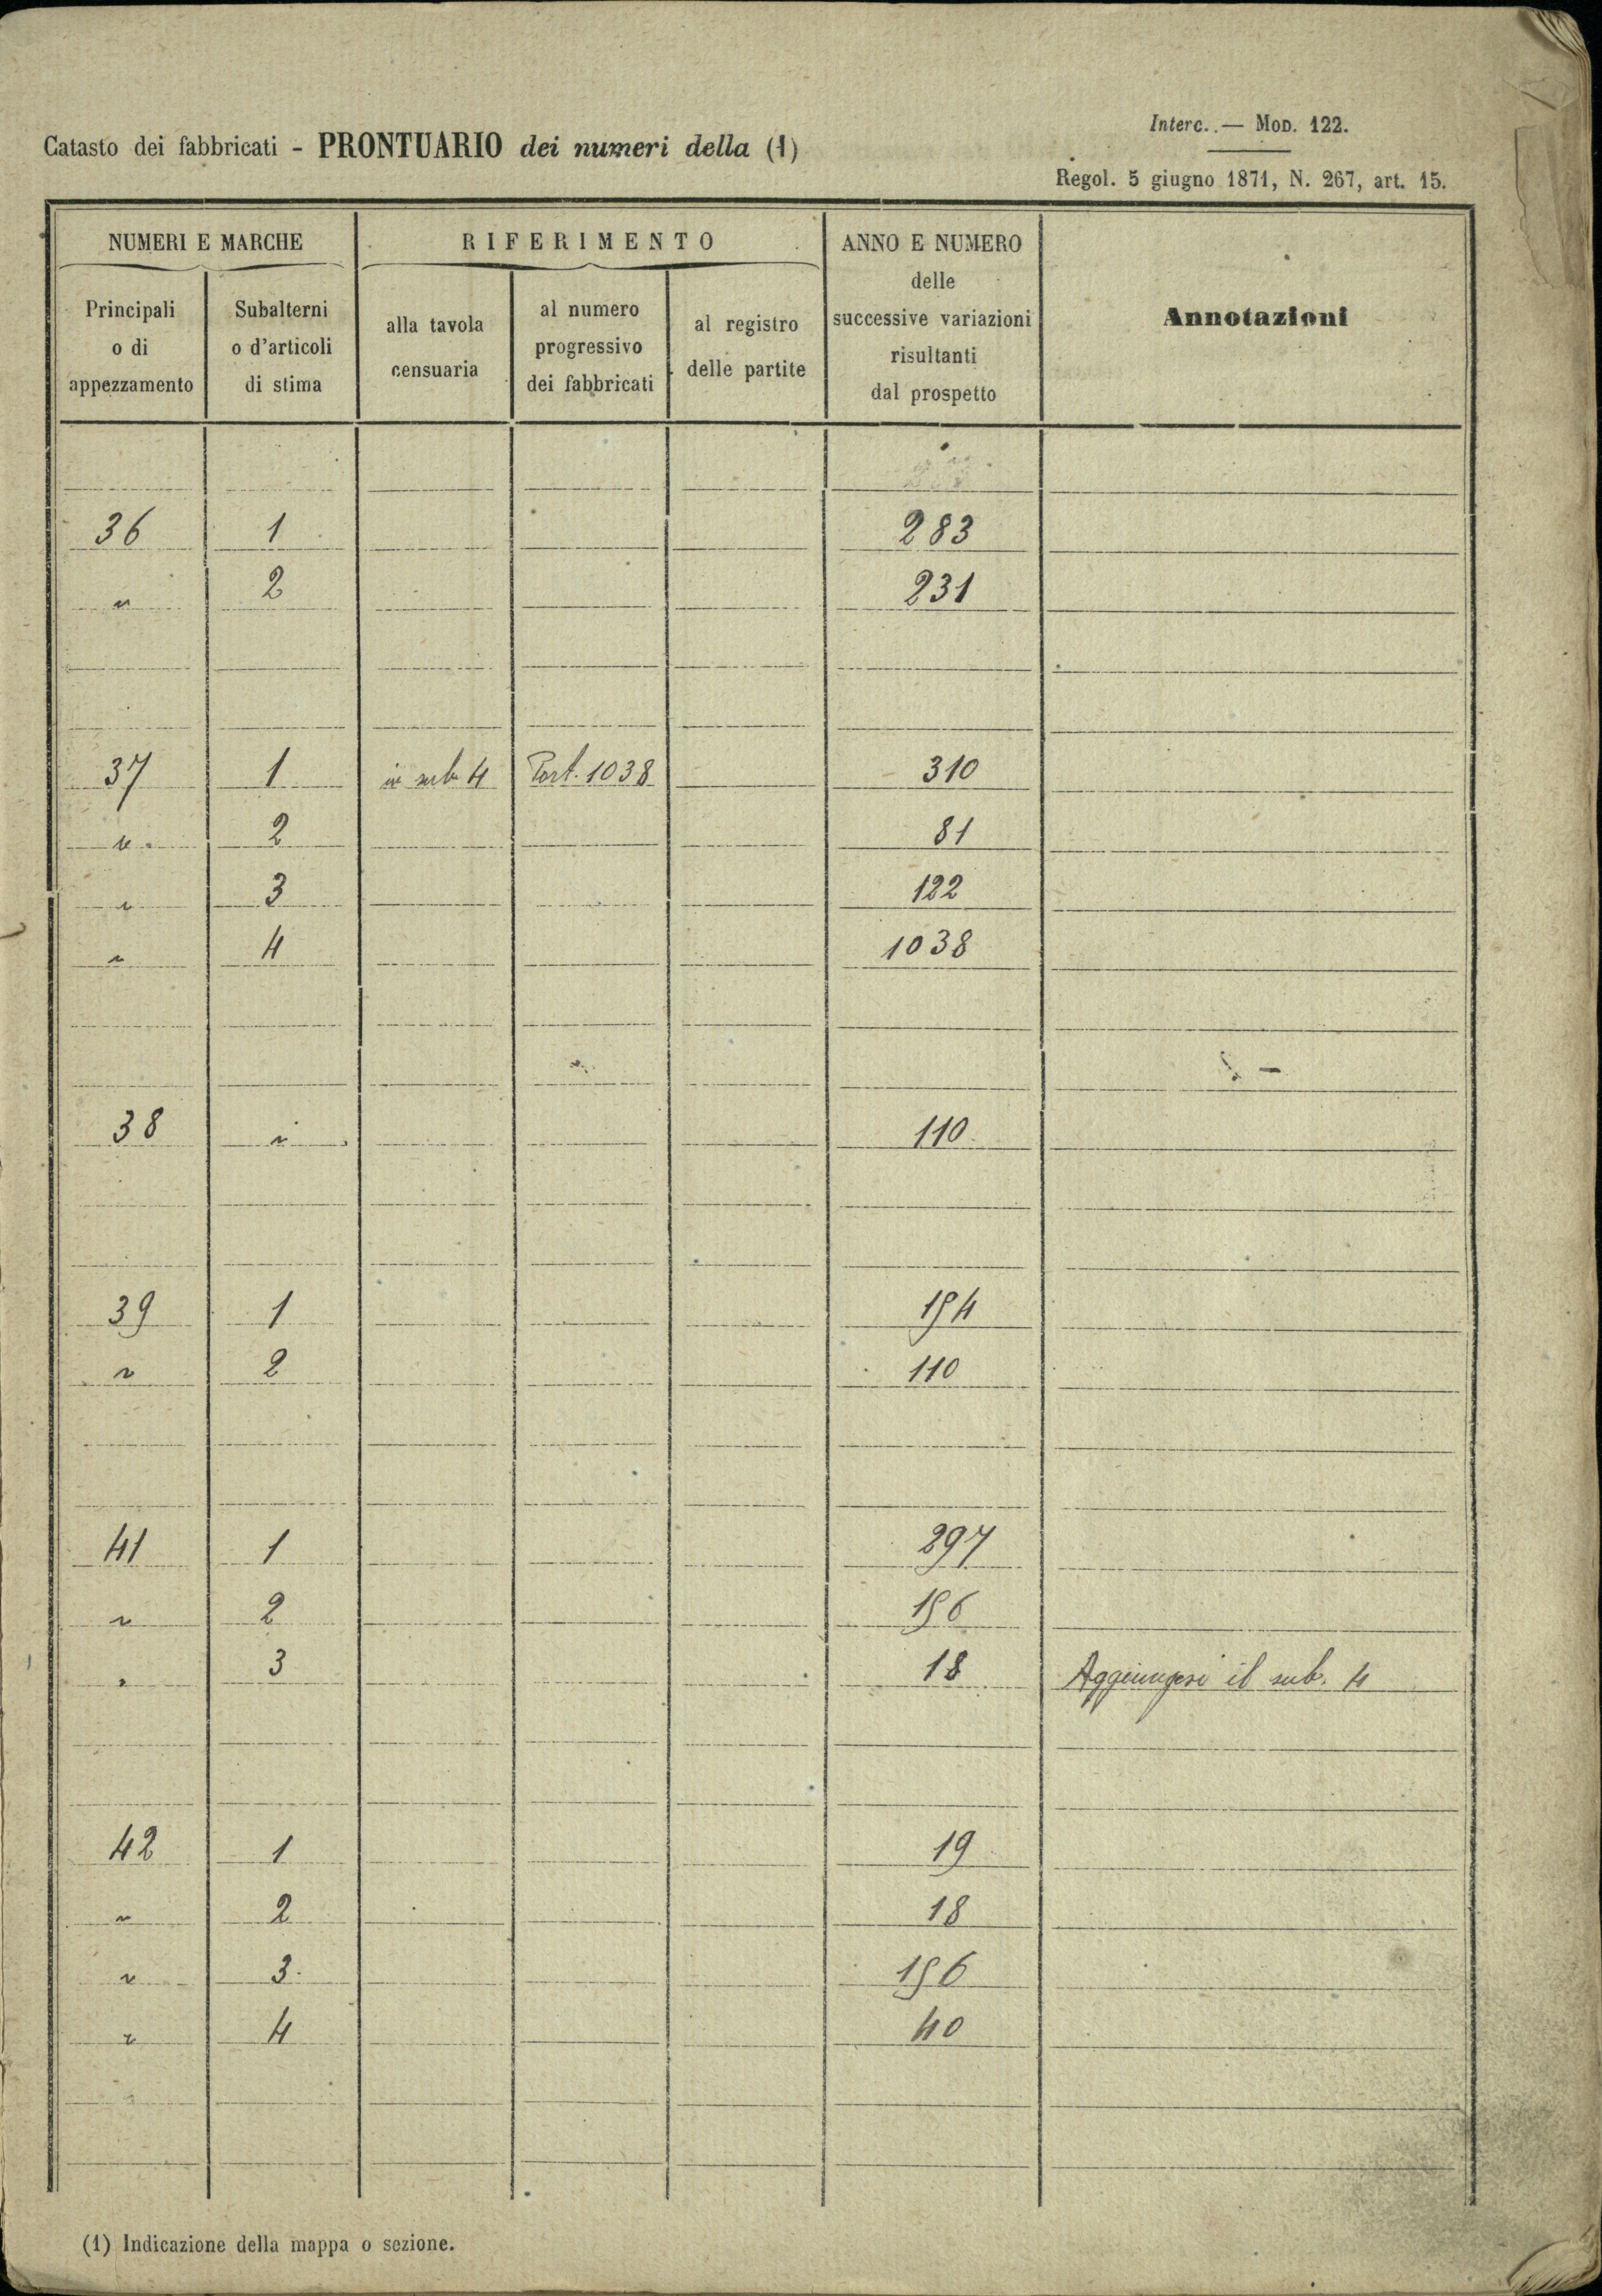 Interc. — Mod. 122.
Catasto dei fabbricati - PRONTUARIO dei numeri della (1)
Regol. 5 giugno 1871, N. 267, art. 15.
NUMERI E MARCHE RIFERIMENTO ANNO E NUMERO delle successive variazioni risultanti dal prospetto Annotazioni
Principali o di appezzamento Subalterni o d'articoli di stima alla tavola censuaria al numero progressivo dei fabbricati al registro delle partite
36 1 283
" 2 231
37 1 in sub 4 Part. 1038 310
" 2 81
" 3 122
" 4 1038
38 " 110
39 1 154
" 2 110
41 1 297
" 2 156
" 3 18 Aggiungesi il sub. 4
42 1 19
" 2 18
" 3 156
" 4 40
(1) Indicazione della mappa o sezione.